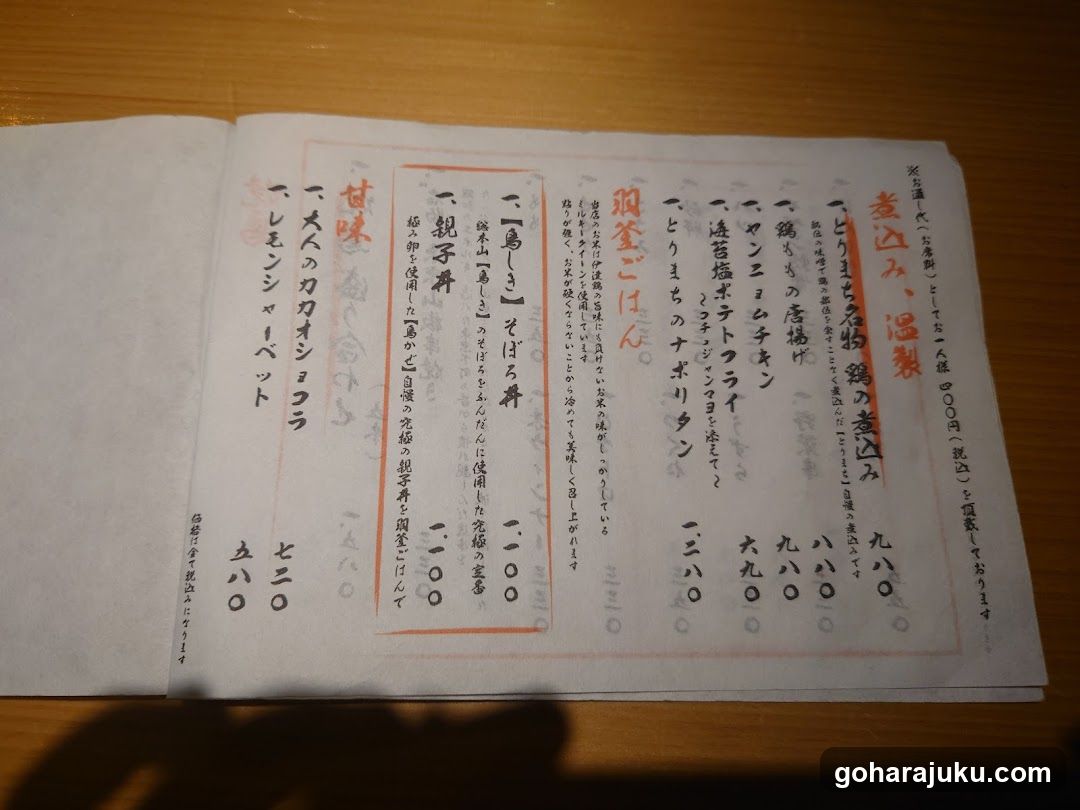 ※お通し代（お席料）としてお一人様 四〇〇円（税込）を頂戴しております
煮込み、温製
一、とりまち名物 鶏の煮込み 九八〇
部位の味噌で鶏の部位を余すことなく煮込んだ【とりまち】自慢の煮込みです
一、鶏ももの唐揚げ 八八〇
一、ヤンニョムチキン 九八〇
一、海苔塩ポテトフライ 六九〇
〜コチュジャンマヨを添えて〜
一、とりまちのナポリタン 一、二八〇
羽釜ごはん
当店のお米は伊達鶏の旨味にも負けないお米の味がしっかりしている
ミルキークイーンを使用しています
粘りが強く、お米が硬くならないことから冷めても美味しく召し上がれます
一、【鳥しき】そぼろ丼 一、一〇〇
総本山【鳥しき】のそぼろをふんだんに使用した究極の定番
一、親子丼 一、一〇〇
極み卵を使用した【鳥かぜ】自慢の究極の親子丼を羽釜ごはんで
甘味
一、大人のカカオショコラ 七二〇
一、レモンシャーベット 五八〇
価格は全て税込みになります
goharajuku.com